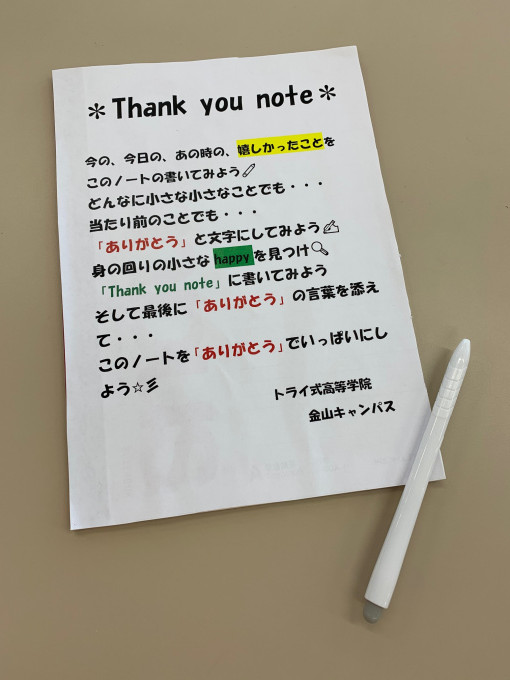 ＊Thank you note＊
今の、今日の、あの時の、嬉しかったことを
このノートの書いてみよう🖊
どんなに小さな小さなことでも・・・
当たり前のことでも・・・
「ありがとう」と文字にしてみよう✍
身の回りの小さなhappyを見つけ🔍
「Thank you note」に書いてみよう
そして最後に「ありがとう」の言葉を添え
て・・・
このノートを「ありがとう」でいっぱいにし
よう☆彡
トライ式高等学院
金山キャンパス